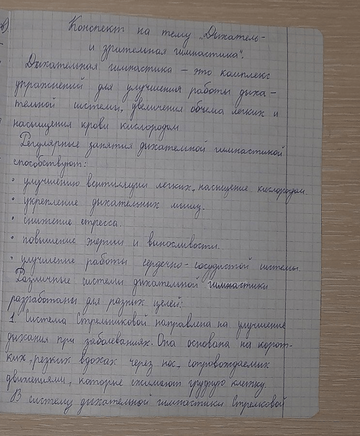 Конспект на тему „Дыхатель-
и зрительная гимнастика".
Дыхательная гимнастика – это комплекс
упражнений для улучшения работы дыха-
тельной системы, увеличения объёма легких и
насыщения крови кислородом
Регулярные занятия дыхательной гимнастикой
способствуют:
• улучшению вентиляции легких, насыщение кислородом
• укрепление дыхательных мышц.
• снижение стресса.
• повышение энергии и выносливости.
• улучшение работы сердечно-сосудистой системы.
Различные системы дыхательной гимнастики
разработаны для разных целей:
1. Система Стрельниковой направлена на улучшение
дыхания при заболеваниях. Она основана на корот-
ких, резких вдохах через нос, сопровождаемых
движениями, которые сжимают грудную клетку.
В систему дыхательной гимнастики Стрелковой